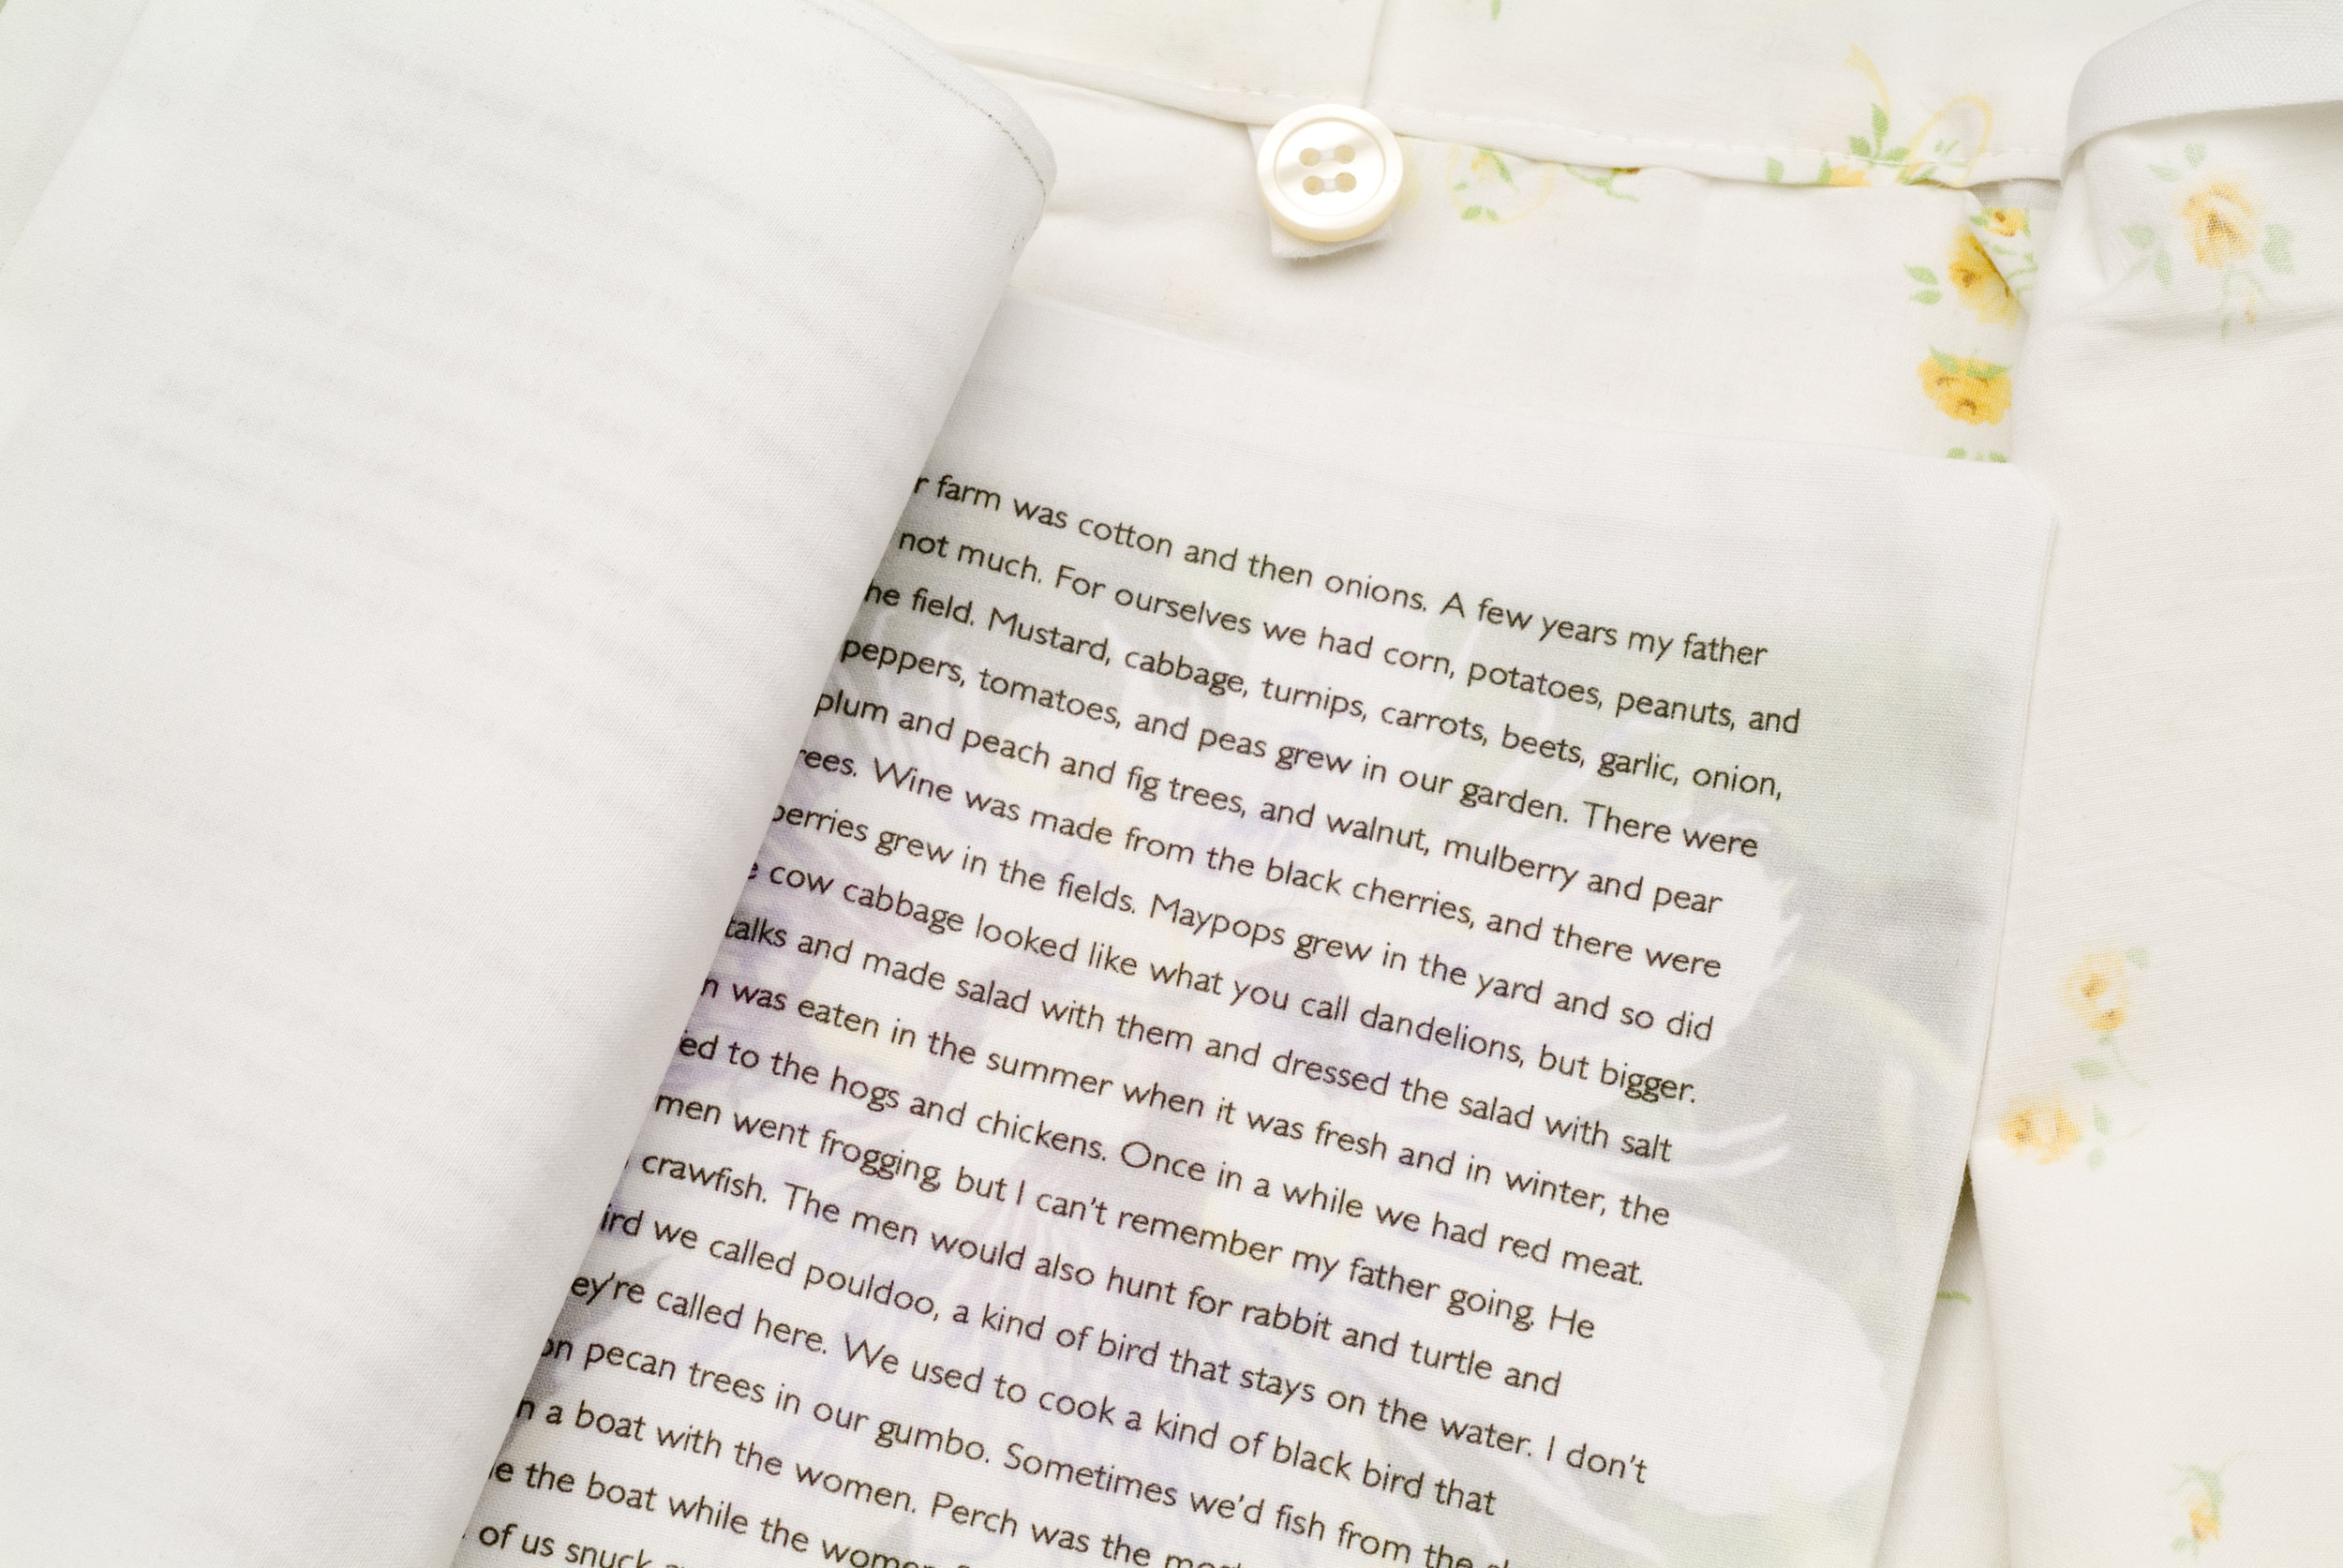 farm was cotton and then onions. A few years my father
not much. For ourselves we had corn, potatoes, peanuts, and
he field. Mustard, cabbage, turnips, carrots, beets, garlic, onion,
peppers, tomatoes, and peas grew in our garden. There were
plum and peach and fig trees, and walnut, mulberry and pear
rees. Wine was made from the black cherries, and there were
berries grew in the fields. Maypops grew in the yard and so did
e cow cabbage looked like what you call dandelions, but bigger.
talks and made salad with them and dressed the salad with salt
n was eaten in the summer when it was fresh and in winter, the
ed to the hogs and chickens. Once in a while we had red meat.
men went frogging, but I can't remember my father going. He
crawfish. The men would also hunt for rabbit and turtle and
ird we called pouldoo, a kind of bird that stays on the water. I don't
ey're called here. We used to cook a kind of black bird that
on pecan trees in our gumbo. Sometimes we'd fish from the
n a boat with the women. Perch was the
e the boat while the women
of us snuck